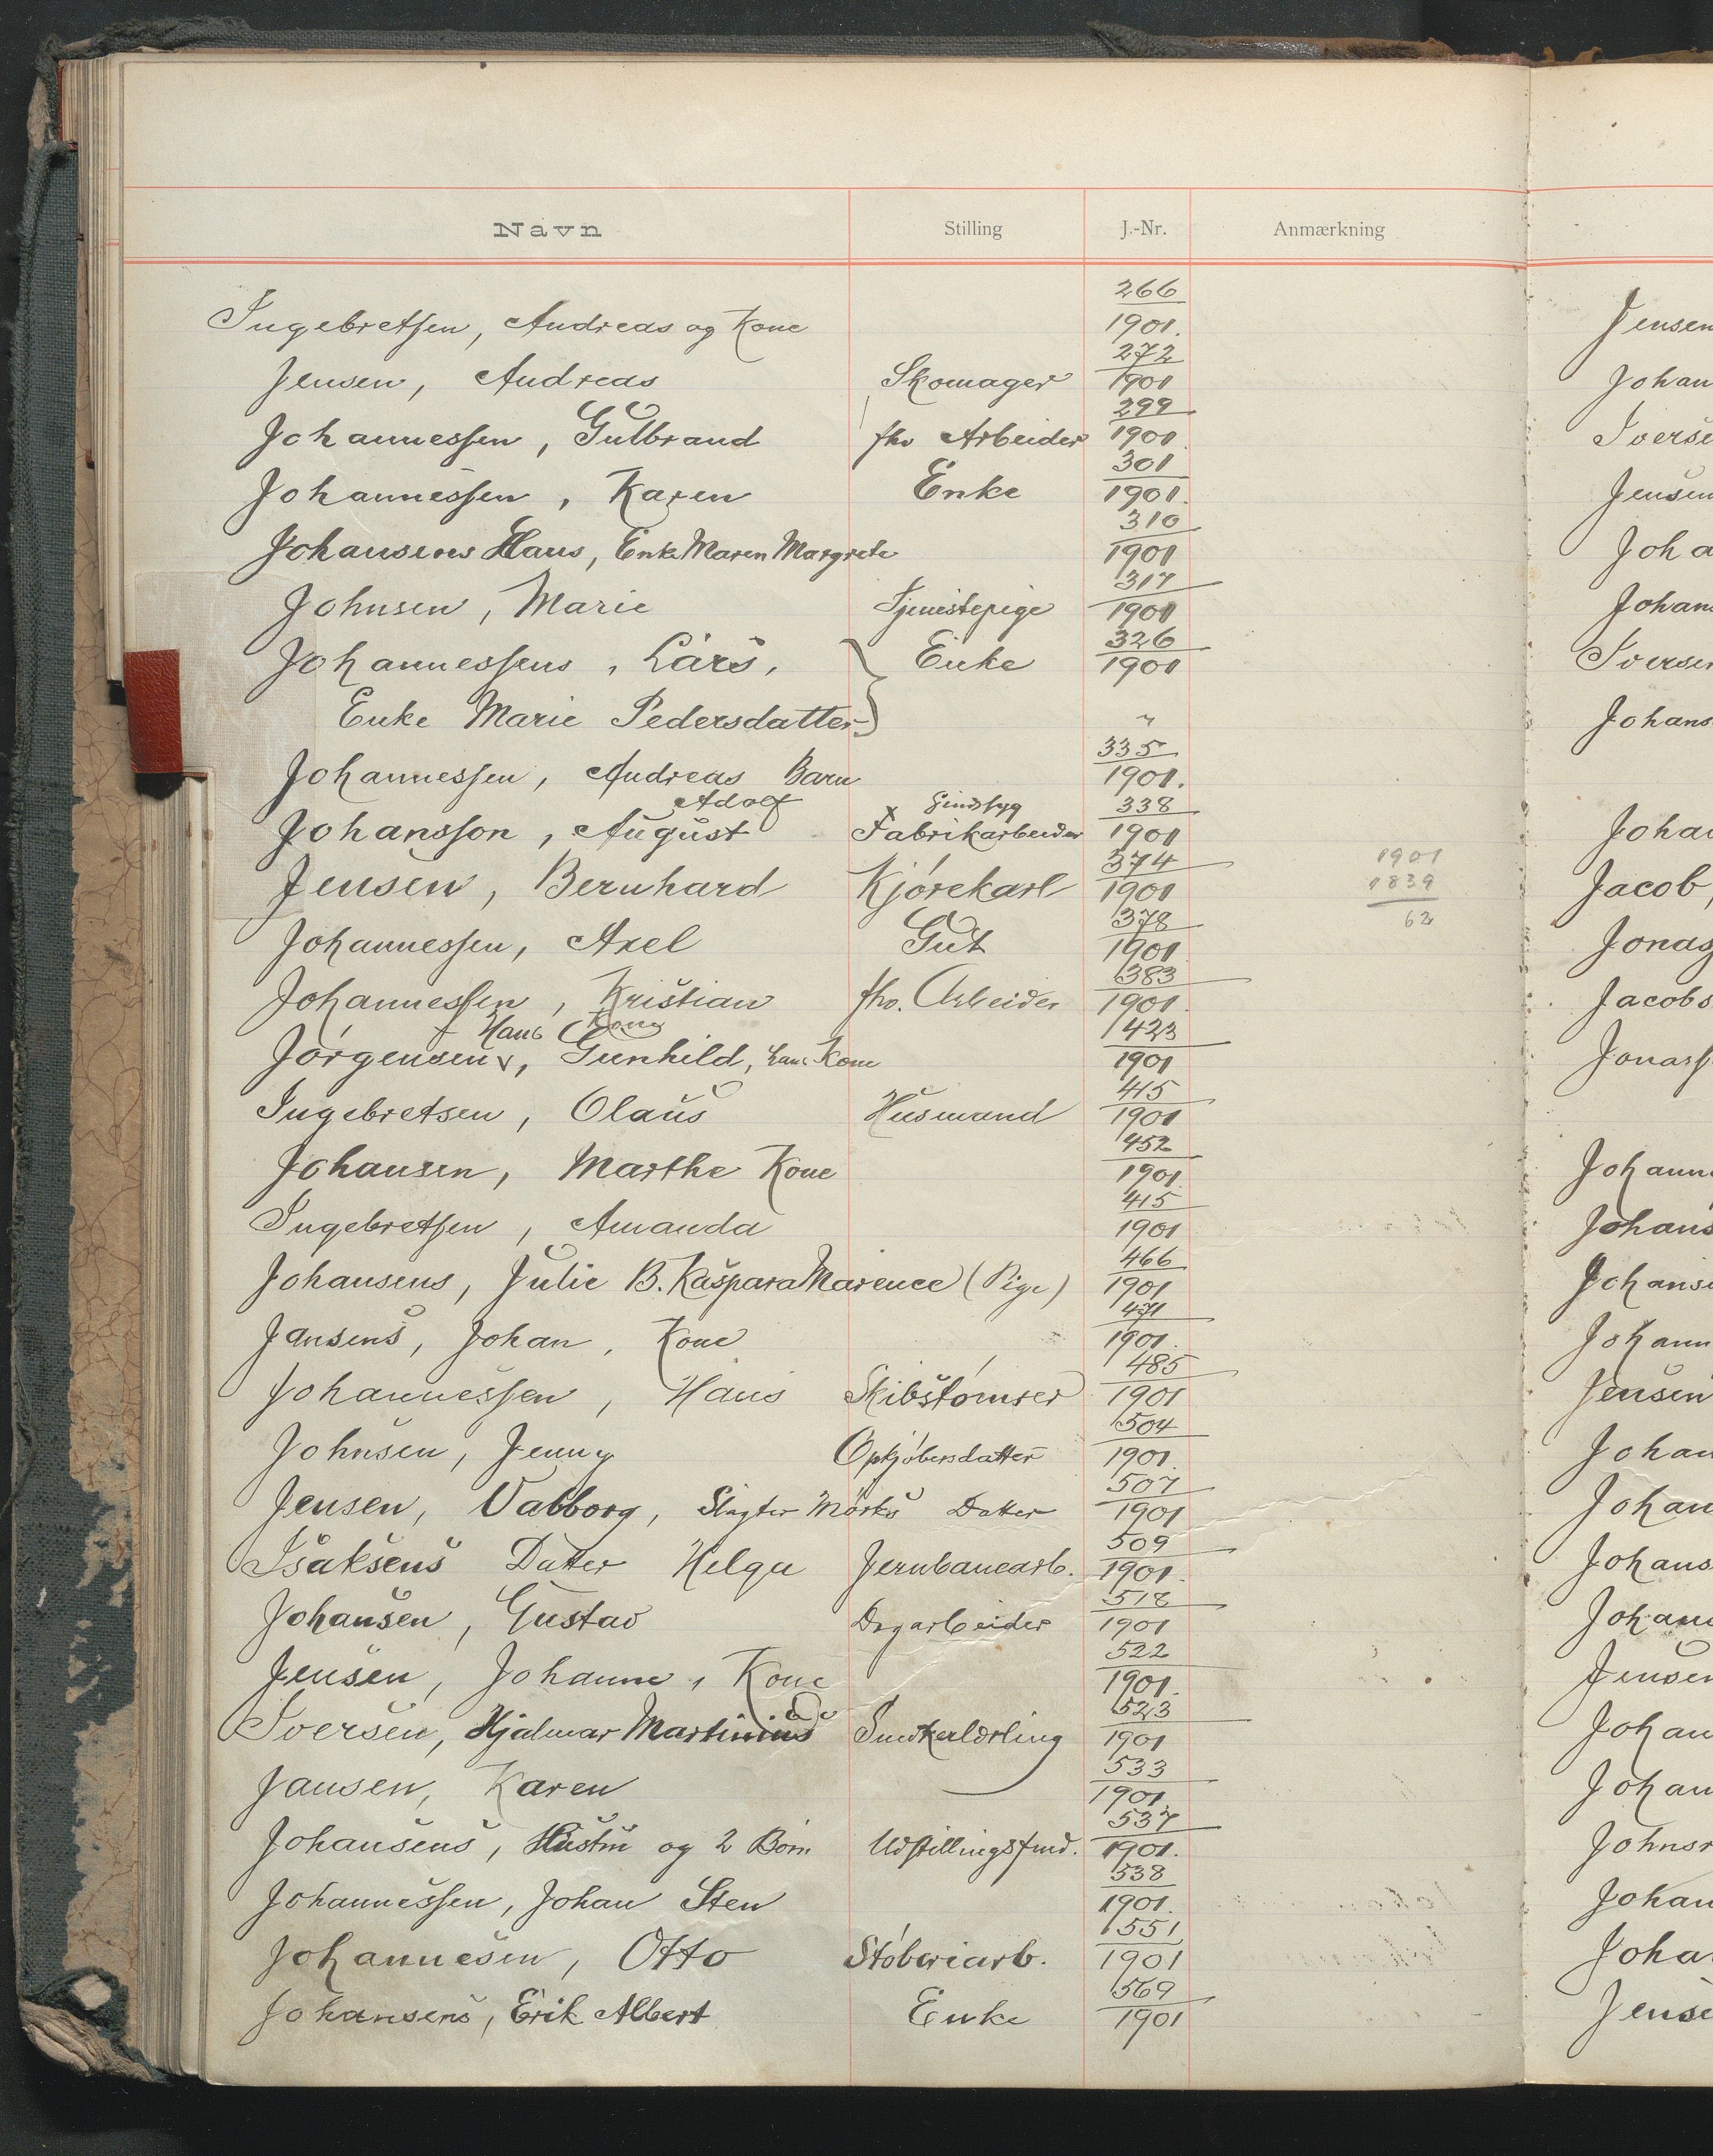 Navn Stilling J.-Nr. Anmærkning
Ingebretsen, Andreas og Kone 266/1901.
Jensen, Andreas Skomager 272/1901
Johannessen, Gulbrand fhv Arbeider 299/1901
Johannessen, Karen Enke 301/1901.
Johansens Hans, Enke Maren Margrete 310/1901
Johnsen, Marie Tjenistepige 317/1901
Johannessens, Lars, Enke 326/1901
Enke Marie Pedersdatter "
Johannessen, Andreas Barn 335/1901.
Adolf Sindsyg
Johansson, August Fabrikarbeider 338/1901
Jensen, Bernhard Kjørekarl 374/1901
1901
1839
62
Johannessen, Axel Gut 378/1901
Johannessen, Kristian fhv. Arbeider 383/1901
Hans Kone
Jørgensen, Gunhild, Kone 423/1901
Ingebretsen, Olaus Husmand 415/1901
Johansen, Marthe Kone 452/1901
Ingebretsen, Amanda 415/1901
Johansens, Julie B. Kaspara Marence (Pige) 466/1901
Jansens, Johan, Kone 471/1901
Johannessen, Hans Skibstømrer 485/1901
Johnsen, Jenny Opkjøbersdatter 504/1901
Jensen, Valborg, Slagter Mørks Datter 507/1901
Isaksens Datter Helga Jernbanearb. 509/1901.
Johansen, Gustav Dagarbeider 518/1901
Jensen, Johanne, Kone 522/1901.
Iversen, Hjalmar Martinius Snedkerlærling 523/1901
Jansen, Karen 533/1901.
Johansens, Hustru og 2 Børn Udstillingsfmd. 537/1901.
Johannessen, Johan Sten 538/1901.
Johannesen, Otto Støberiarb. 551/1901
Johansens, Erik Albert Enke 569/1901
Jensen
Johan
Iverse
Jensen
Joha
Johan
Iversen
Johans
Johan
Jacob,
Jonas
Jacobs
Jonass
Johann
Johans
Johanse
Johann
Jensen
Johan
Johan
Johans
Johan
Jensen
Johan
Johan
Johnse
Johan
Joha
Jense